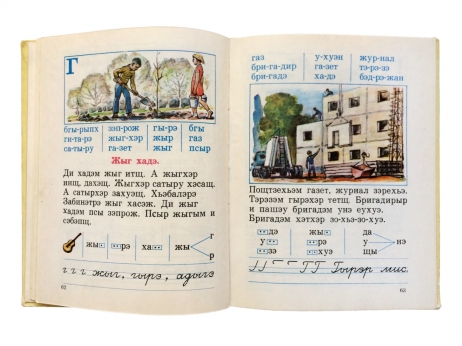 Г
бгы-рыпх зэп-рож гы-рэ бгы
ги-та-рэ жыгхэр жыр газ
са-ты-ру га-зет жыг псыр
Жыг хадэ.
Ди хадэм жыг итщ. А жыгхэр
иищ, дахэщ. Жыгхэр сатыру хэсащ.
А сатырхэр захуэщ. Хьэбалэрэ
Забинэтрэ жыг хасэж. Ди жыг
хадэм псы зэпрож. Псыр жыгым и
сэбэпщ.
жы рэ ха жы г р
г г г жыг, гырэ, адыгэ
62
газ у-хуэн жур-нал
бри-га-дир га-зет тэ-рэ-зэ
бри-га-дэ ха-дэ бэд-рэ-жан
Пощтзехьэм газет, журнал зэрехьэ.
Тэрэзэм гырэхэр тетщ. Бригадирыр
и пащэу бригадэм унэ еухуэ.
Бригадэм хэтхэр зо-хьэ-зо-хуэ.
дэ жы да
у рэ у нэ
зэ ха щы
Г Г Г Г Гырэр мис.
63